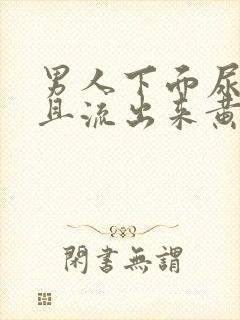 男人下面尿
且流出来黄
閑書無謂